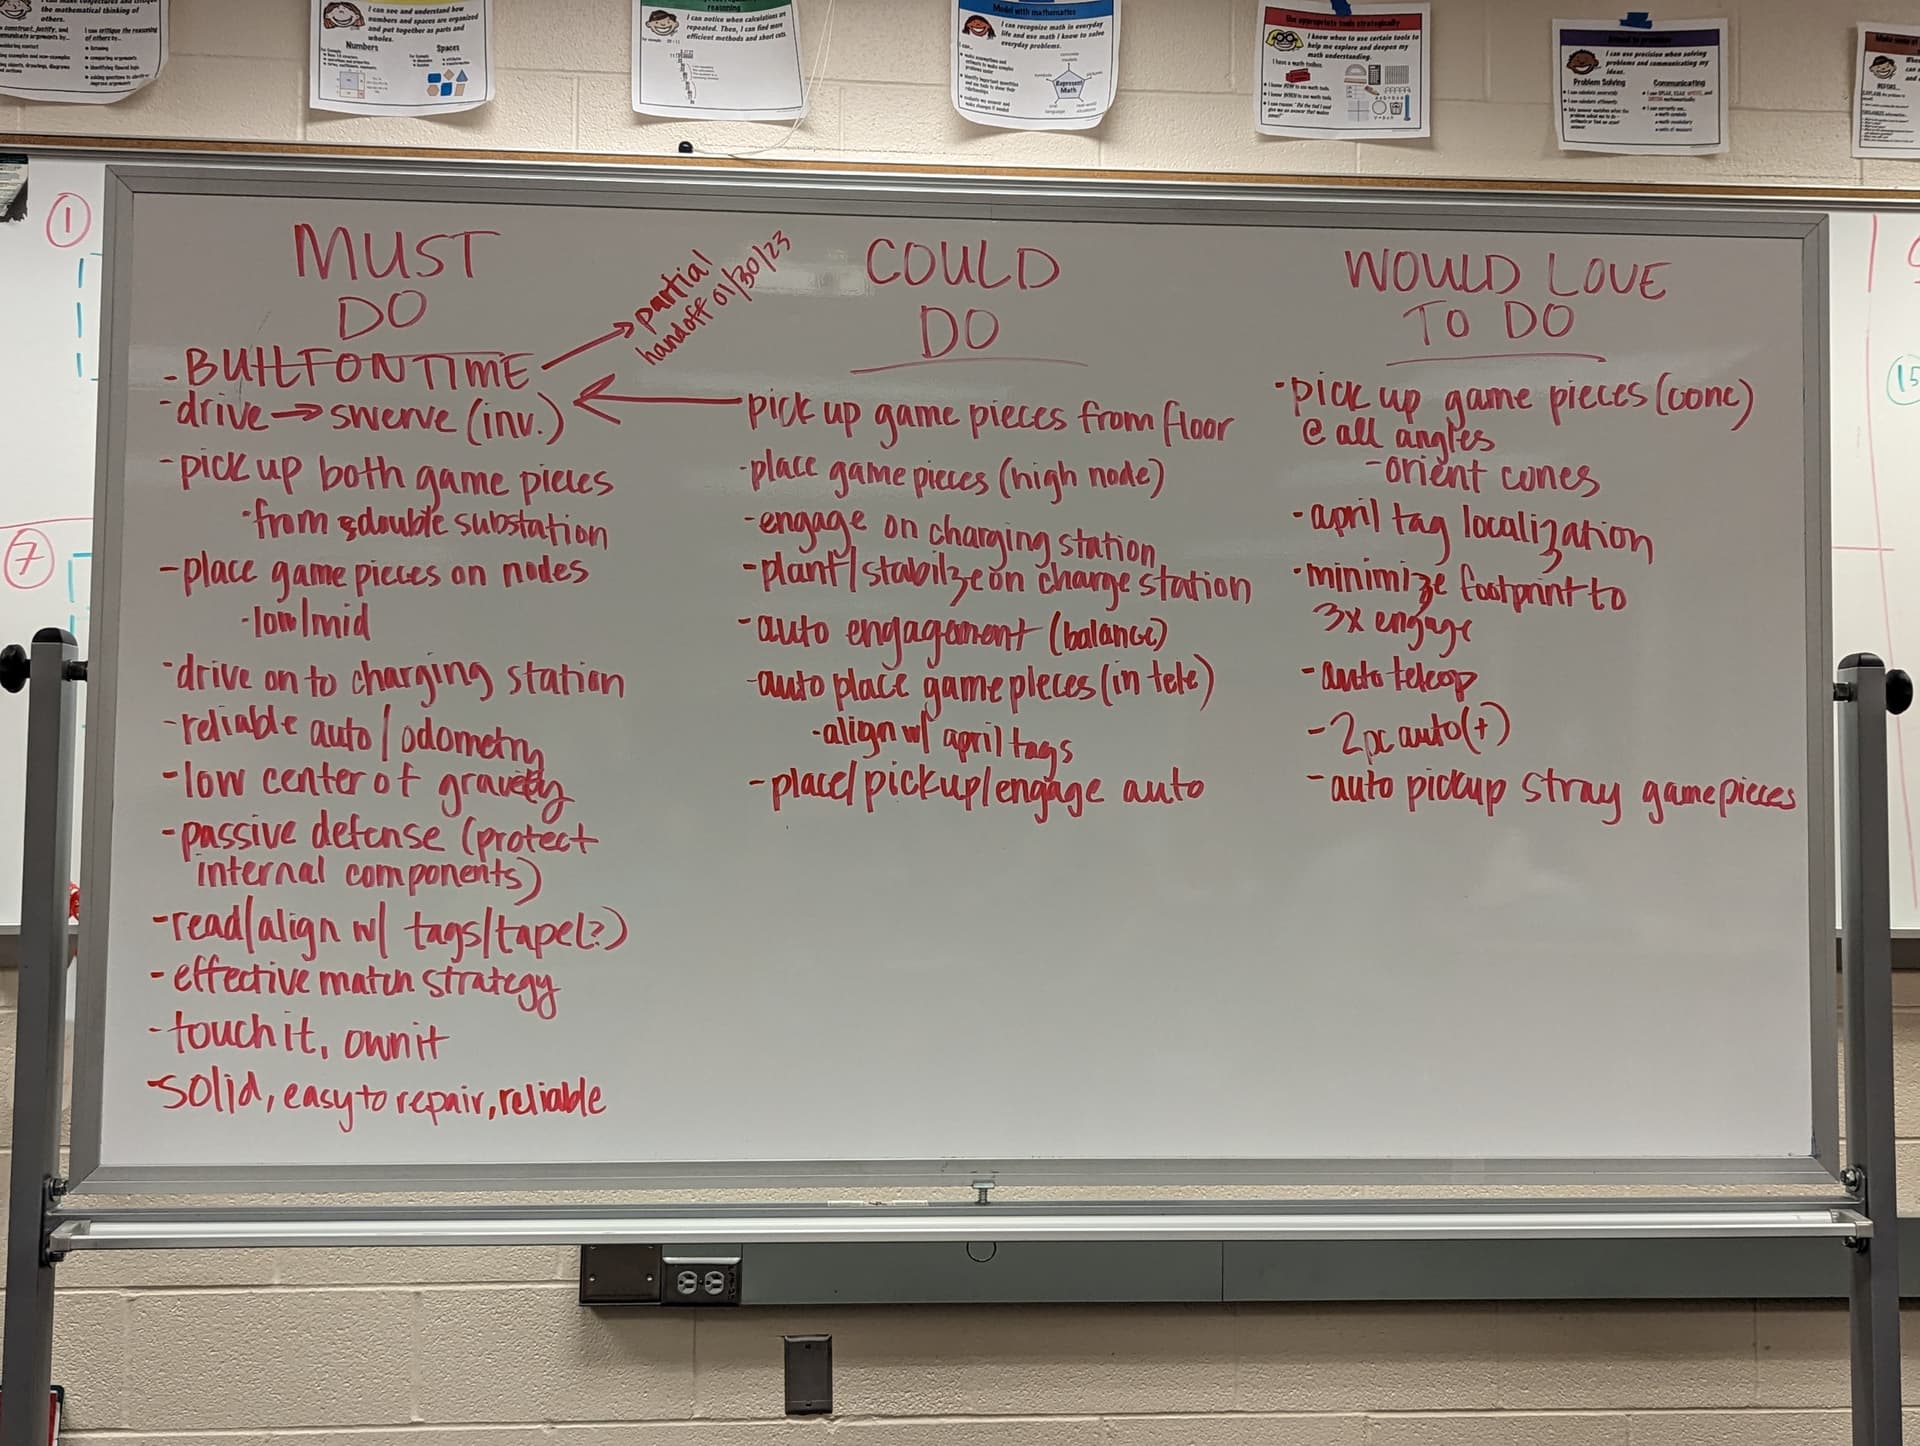 the mathematical thinking of
others.
I can see and understand how
numbers and spaces are organized
and put together as parts and
wholes.
Numbers
Spaces
reasoning
I can notice when calculations are
repeated. Then, I can find more
efficient methods and short cuts.
Model with mathematics
I can recognize math in everyday
life and use math I know to solve
everyday problems.
Express
Math
Use appropriate tools strategically
I know when to use certain tools to
help me explore and deepen my
math understanding.
I have a math toolbox.
I can use precision when solving
problems and communicating my
ideas.
Problem Solving
Communicating
1
7
15
MUST
DO
- BUILT ON TIME
partial
handoff 01/30/23
- drive → swerve (inv.)
- pick up both game pieces
- from double substation
- place game pieces on nodes
- low/mid
- drive on to charging station
- reliable auto / odometry
- low center of gravity
- passive defense (protect
internal components)
- read/align w/ tags/tape(?)
- effective match strategy
- touch it, own it
- solid, easy to repair, reliable
COULD
DO
pick up game pieces from floor
- place game pieces (high node)
- engage on charging station
- plant/stabilze on charge station
- auto engagement (balance)
- auto place game pieces (in tele)
- align w/ april tags
- place/pickup/engage auto
WOULD LOVE
TO DO
- pick up game pieces (cone)
@ all angles
- orient cones
- april tag localization
- minimize footprint to
3x engage
- auto teleop
- 2pc auto(+)
- auto pickup stray game pieces